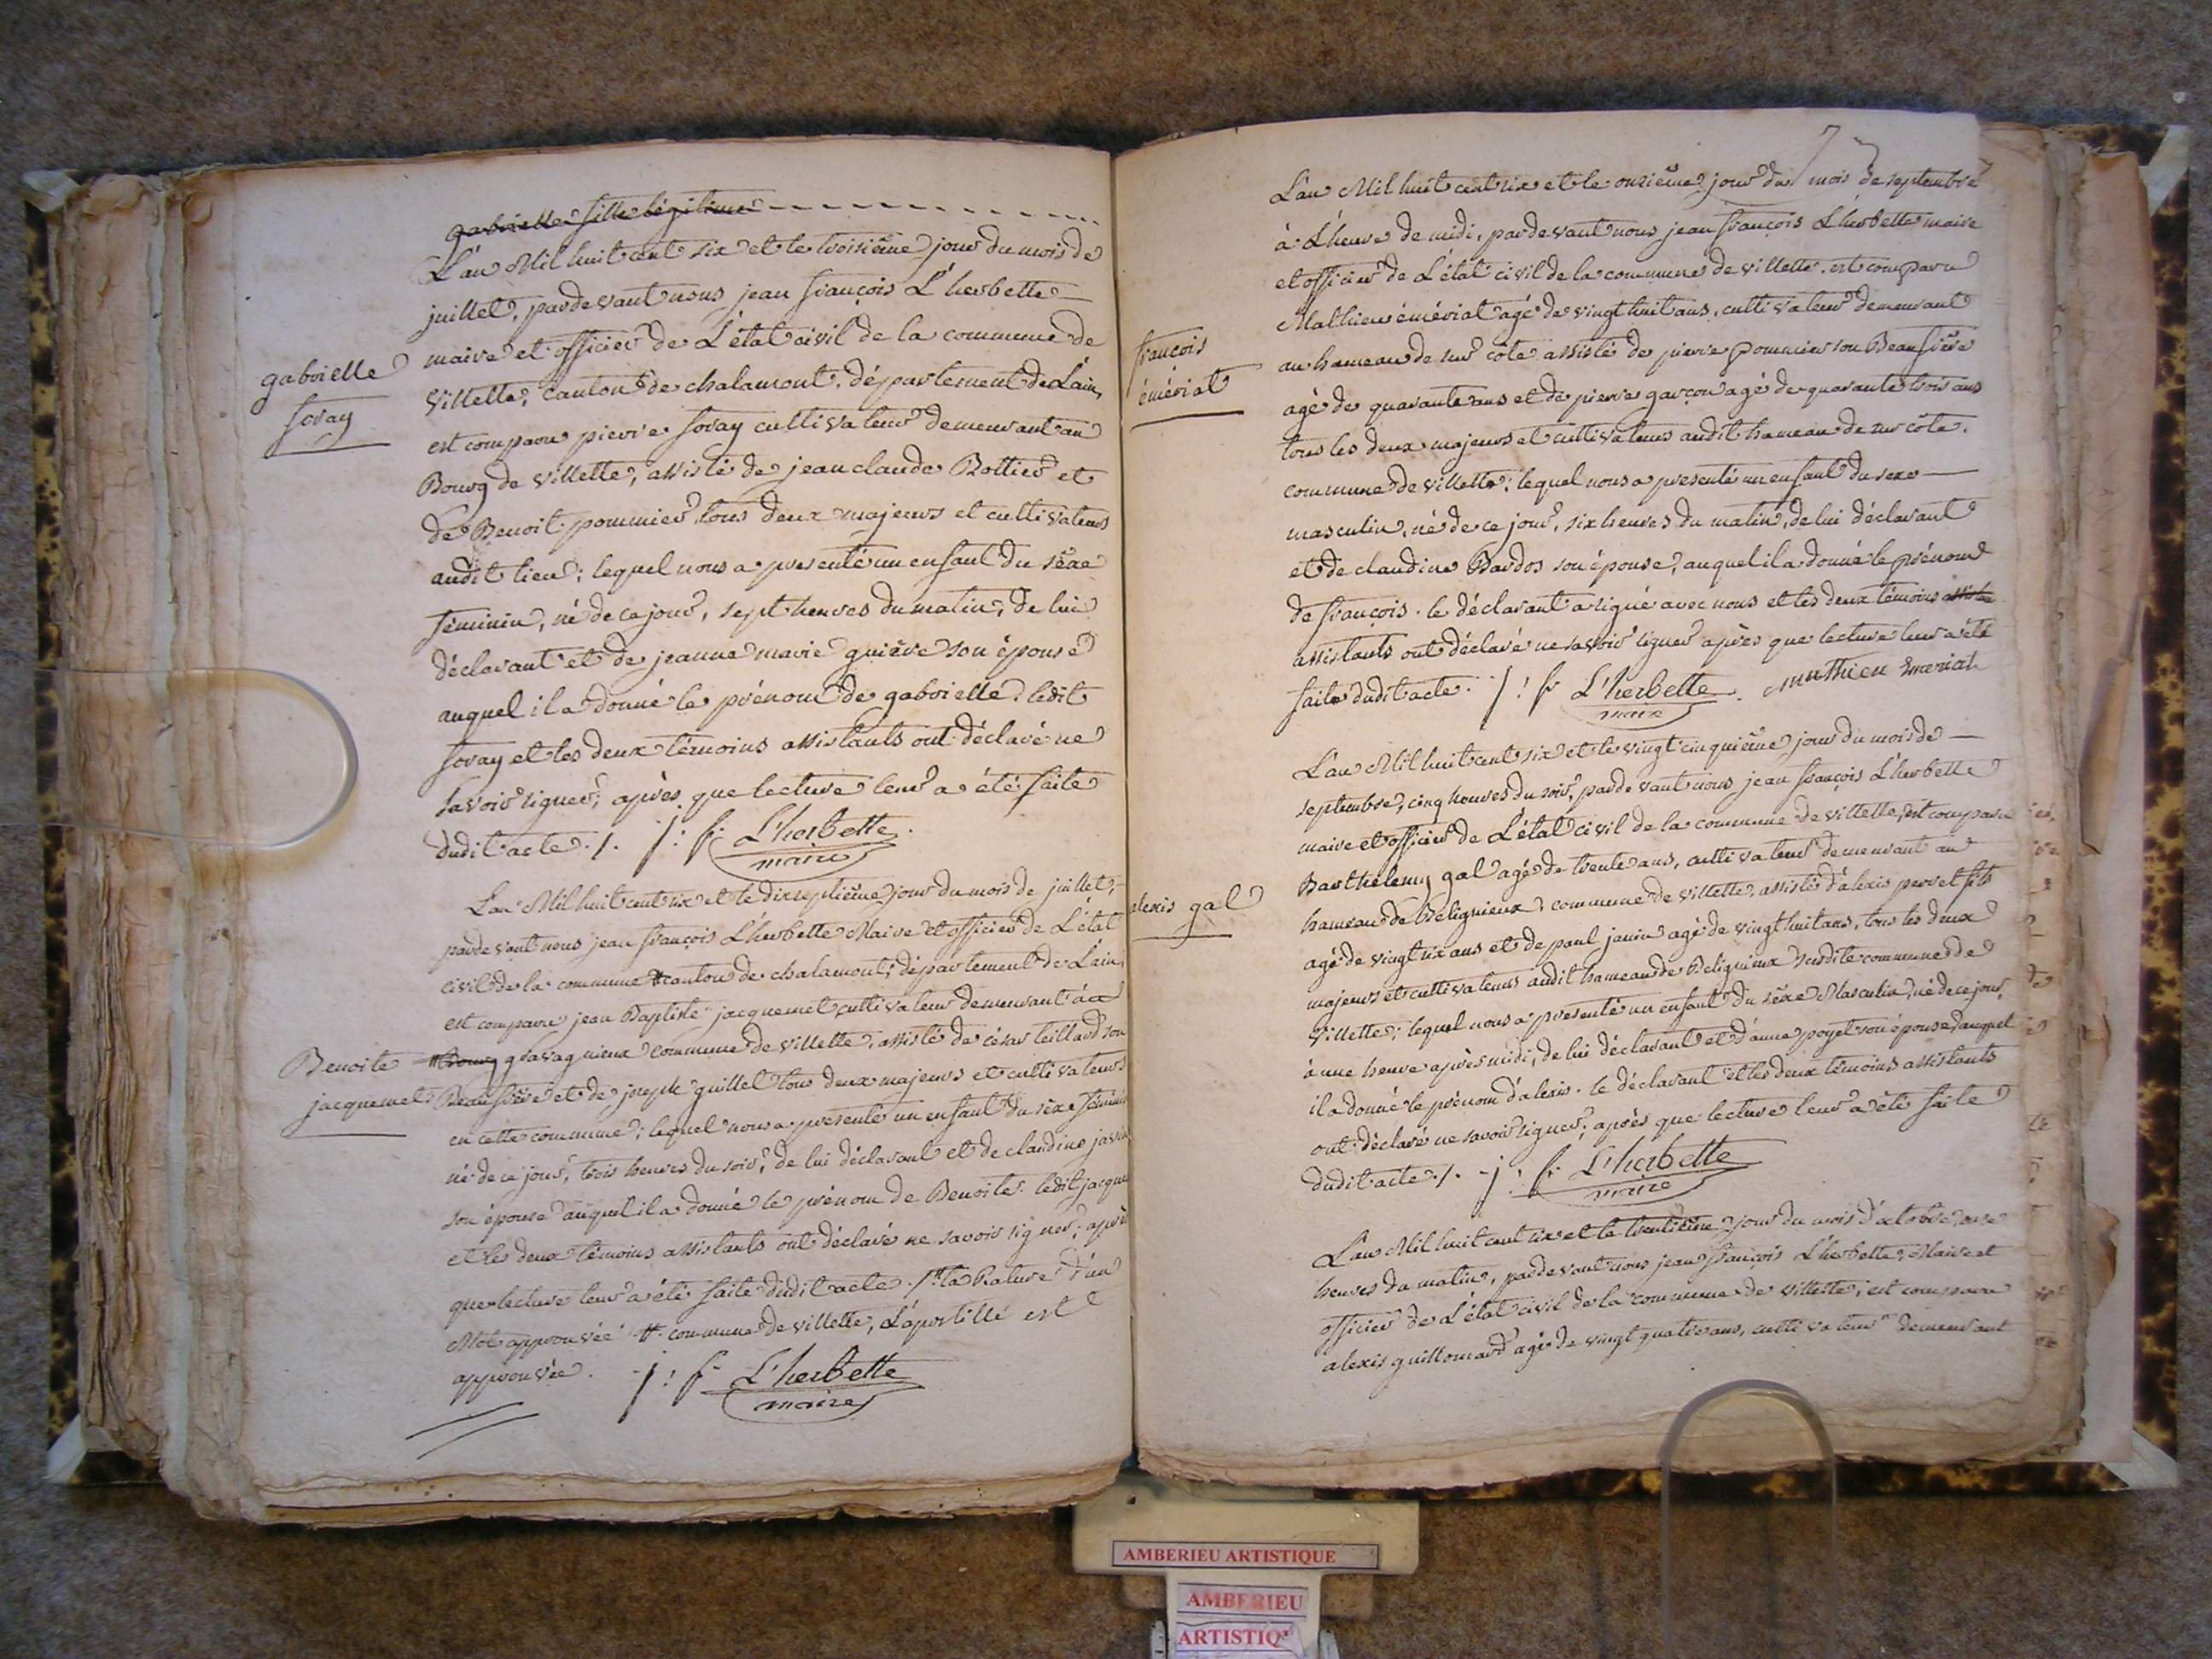 gabrielle fille légitime
L'an Mil huit cent six et le troisième jour du mois de
juillet, pardevant nous jean françois L'herbette
maire et officier de L'état civil de la commune de
Villette, canton de chalamont, département de L'ain,
est comparu pierre foray cultivateur demeurant au
Bourg de Villette, assisté de jean claude Rottier et
de Benoit pommier, tous deux majeurs et cultivateurs
audit lieu; lequel nous a presenté un enfant du sèxe
féminin, né de ce jour, sept heures du matin, de lui
déclarant et de jeanne marie guière son épouse
auquel il a donné le prénom de gabrielle. ledit
foray et les deux témoins assistants ont déclaré ne
savoir signer, après que lecture leur a été faite
dudit acte ./. j: f. L'herbette.
maire
gabrielle
foray
L'an Mil huit cent six et le dixseptième jour du mois de juillet,
pardevant nous jean françois L'herbette Maire et officier de L'état
civil de la commune # canton de chalamont; département de L'ain,
est comparu jean Baptiste jacquemet cultivateur demeurant à
gravagnieux commune de villette, assisté de césar teillard son
Beaufrère et de joseph guillet tous deux majeurs et cultivateurs
en cette commune; lequel nous a presenté un enfant du sèxe féminin
né de ce jour, trois heures du soir, de lui déclarant et de claudine
son épouse auquel il a donné le prénom de Benoite. ledit jacque
et les deux témoins assistants ont déclaré ne savoir signer; après
que lecture leur a été faite dudit acte ./. la Rature d'un
Mot approuvée # commune de villette, L'apostille est
approuvée. j: f. L'herbette
maire
Benoite
jacquemet
L'an Mil huit cent six et le onzième jour du mois de septembre
à L'heure de midi, pardevant nous jean françois L'herbette maire
et officier de L'état civil de la commune de villette, est comparu
Mathieu émériat agé de vingt huit ans, cultivateur demeurant
au hameau de sur côte assisté de pierre pommier son Beaufrère
agé de quarante ans et de pierre garçon agé de quarante trois ans
tous les deux majeurs et cultivateurs audit hameau de sur côte.
commune de villette; lequel nous a presenté un enfant du sexe
masculin, né de ce jour, six heures du matin, de lui déclarant
et de claudine Bardos son épouse, auquel il a donné le prénom
de françois. le déclarant a signé avec nous et les deux témoins
assistants ont déclaré ne savoir signer après que lecture leur a été
faite dudit acte. j: f. L'herbette. mathieu Emeriat
maire
françois
émériat
L'an Mil huit cent six et le vingt cinquième jour du mois de
septembre, cinq heures du soir, pardevant nous jean françois L'herbette
maire et officier de L'état civil de la commune de villette, est comparu
Barthelemy gal agé de trente ans, cultivateur demeurant au
hameau de Béligneux commune de villette, assisté d'alexis perret fils
agé de vingt six ans et de paul janin agé de vingt huit ans, tous les deux
majeurs et cultivateurs audit hameau de Béligneux susdite commune de
Villette; lequel nous a presenté un enfant du sèxe Masculin, né de ce jour,
à une heure après midi, de lui déclarant et d'anne poyet son épouse, auquel
il a donné le prénom d'alexis. le déclarant et les deux témoins assistants
ont déclaré ne savoir signer, après que lecture leur a été faite
dudit acte ./. j: f. L'herbette
maire
alexis gal
L'an Mil huit cent six et le trentième jour du mois d'octobre, onze
heures du matin, pardevant nous jean françois L'herbette, Maire et
officier de L'état civil de la commune de villette, est comparu
alexis guillomard agé de vingt quatre ans, cultivateur demeurant
AMBERIEU ARTISTIQUE
AMBERIEU
ARTISTIQ